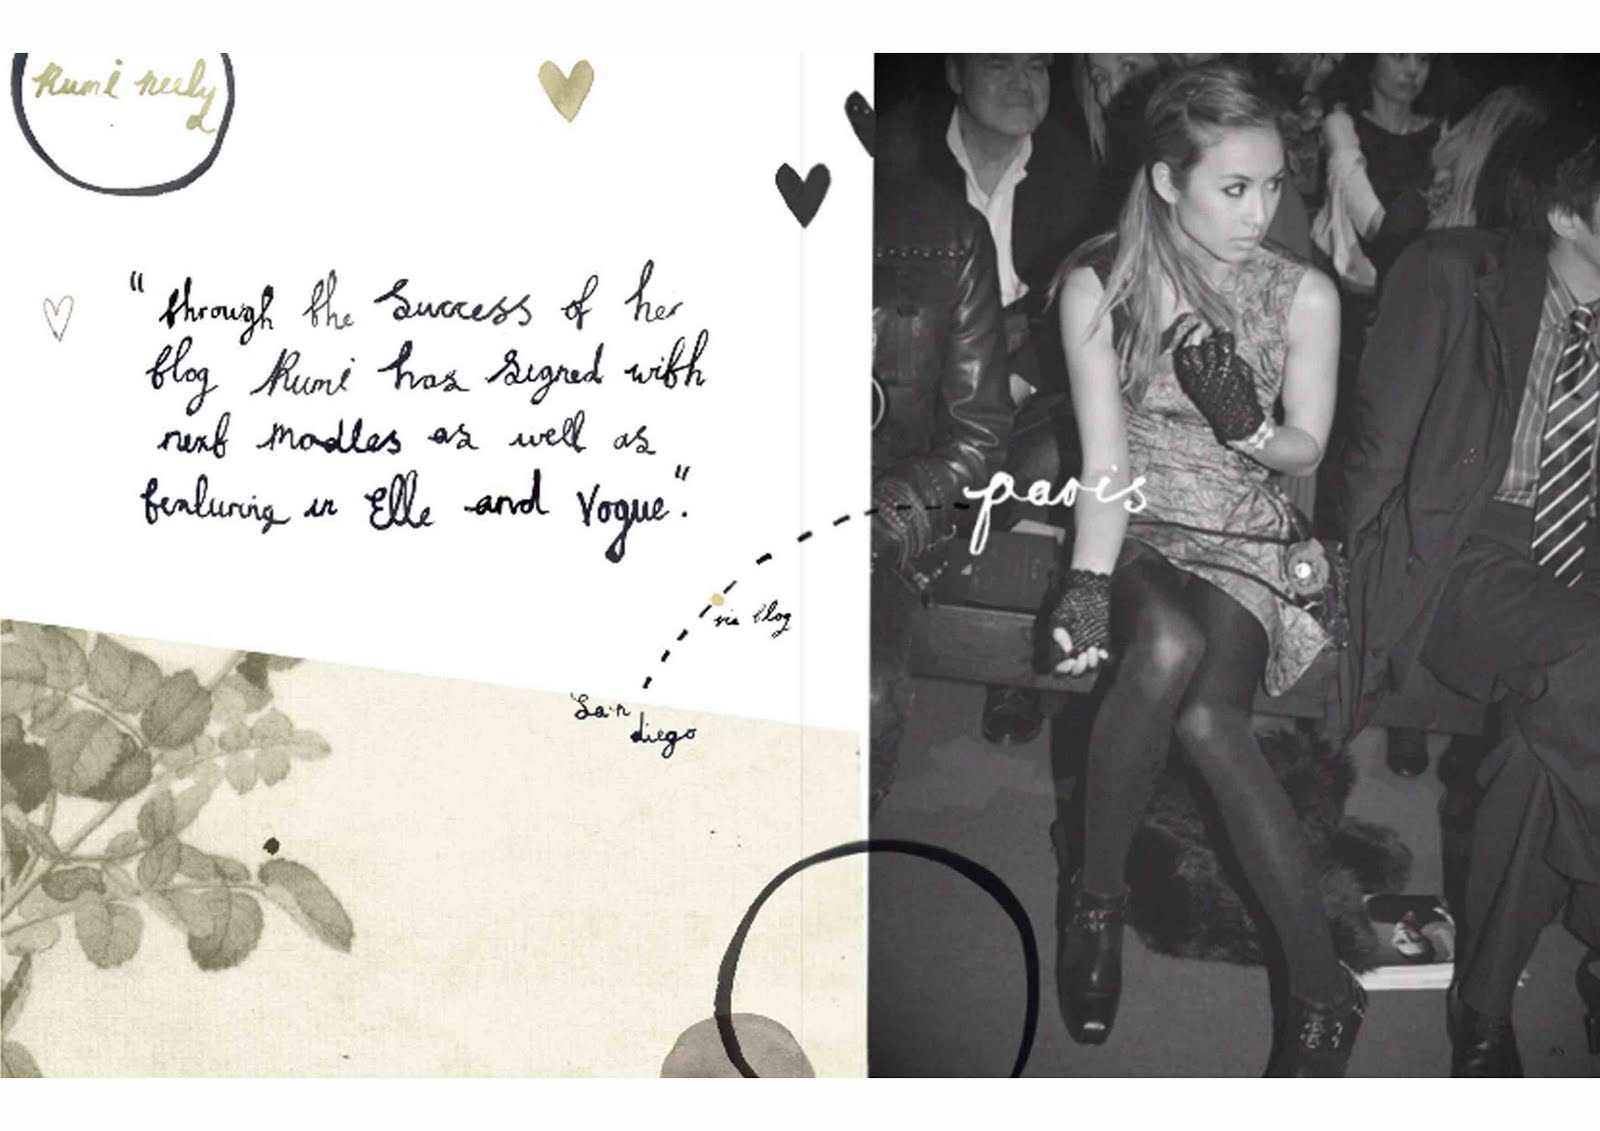 Rumi neely
"through the success of her
blog Rumi has signed with
next Modles as well as
featuring in Elle and Vogue".
paris
via blog
San
diego